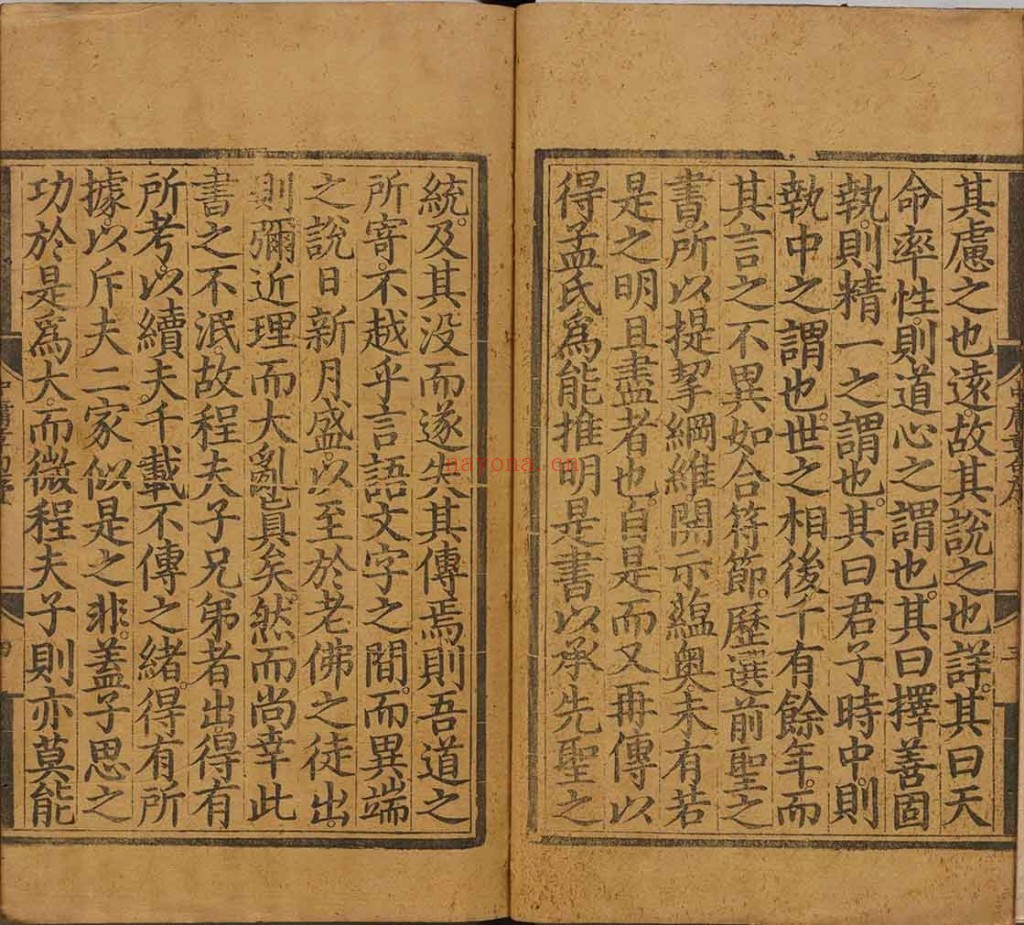 其慮之也遠。故其說之也詳。其曰天
命率性。則道心之謂也。其曰擇善固
執。則精一之謂也。其曰君子時中。則
執中之謂也。世之相後。千有餘年。而
其言之不異。如合符節。歷選前聖之
書。所以提挈綱維。開示蘊奧。未有若
是之明且盡者也。自是而又再傳以
得孟氏。爲能推明是書。以承先聖之
統。及其没而遂失其傳焉。則吾道之
所寄。不越乎言語文字之間。而異端
之說日新月盛。以至於老佛之徒出。
則彌近理而大亂眞矣。然而尚幸此
書之不泯。故程夫子兄弟者出。得有
所考。以續夫千載不傳之緒。得有所
據。以斥夫二家似是之非。蓋子思之
功於是爲大。而微程夫子。則亦莫能
nayona.cn